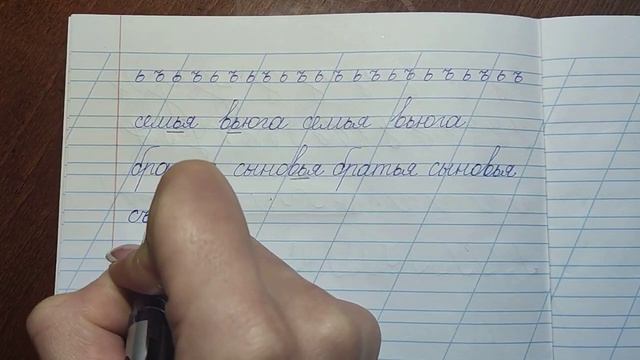 ь ъ ь ъ ь ъ ь ъ ь ъ ь ъ ь ъ ь ъ ь ъ ь ъ ь ъ
семья вьюга семья вьюга
сыновья братья сыновья
съ